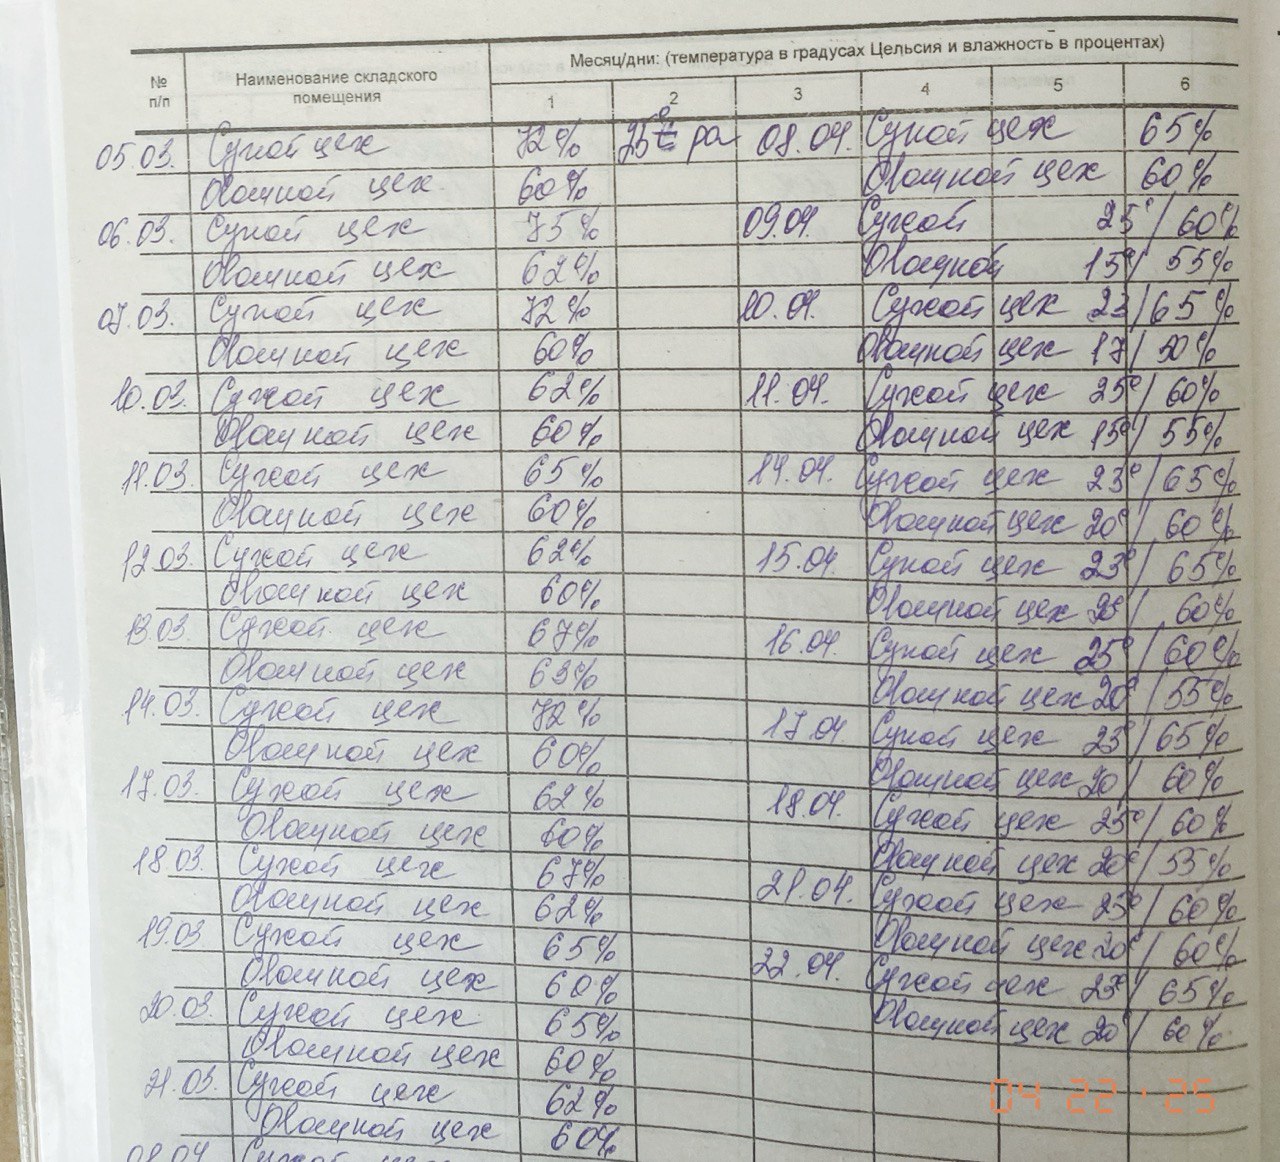 Месяц/дни: (температура в градусах Цельсия и влажность в процентах)
№ п/п Наименование складского помещения 1 2 3 4 5 6
05.03. Сухой цех 72% 25°C 08.04. Сухой цех 65%
Овощной цех 60% Овощной цех 60%
06.03. Сухой цех 75% 09.04. Сухой 25°/60%
Овощной цех 62% Овощной 15°/55%
07.03. Сухой цех 72% 10.04. Сухой цех 23/65%
Овощной цех 60% Овощной цех 17/50%
10.03. Сухой цех 62% 11.04. Сухой цех 25°/60%
Овощной цех 60% Овощной цех 15°/55%
11.03. Сухой цех 65% 14.04. Сухой цех 23°/65%
Овощной цех 60% Овощной цех 20°/60%
12.03. Сухой цех 62% 15.04. Сухой цех 23°/65%
Овощной цех 60% Овощной цех 60%
13.03. Сухой цех 67% 16.04. Сухой цех 25°/60%
Овощной цех 63% Овощной цех 20°/55%
14.03. Сухой цех 72% 17.04 Сухой цех 23°/65%
Овощной цех 60% Овощной цех 20/60%
17.03. Сухой цех 62% 18.04. Сухой цех 25°/60%
Овощной цех 60% Овощной цех 20°/55%
18.03. Сухой цех 67% 21.04. Сухой цех 25°/60%
Овощной цех 62% Овощной цех 20°/60%
19.03 Сухой цех 65% 22.04. Сухой цех 23°/65%
Овощной цех 60% Овощной цех 20°/60%
20.03. Сухой цех 65%
Овощной цех 60%
21.03. Сухой цех 62%
Овощной цех 60%
08.04. Сухой цех
04 22 '25